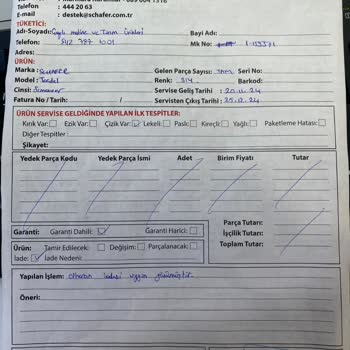 Telefon : 444 20 63
E-mail : destek@schafer.com.tr
TÜKETİCİ:
Adı-Soyadı: ve Tarım Bayi Adı:
Telefon: 512 787 1001 Mk No:
Adres:
ÜRÜN:
Marka : SCHAFER Gelen Parça Sayısı: Seri No:
Model : Renk: Barkod:
Cinsi: Servise Geliş Tarihi : 20.12.24
Fatura No / Tarih: / Servisten Çıkış Tarihi : 25.12.24
ÜRÜN SERVİSE GELDİĞİNDE YAPILAN İLK TESPİTLER:
Kırık Var: Ezik Var: Çizik Var: Lekeli: Paslı: Kireçli: Yağlı: Paketleme Hatası:
Diğer Tespitler :
Şikayet:
Yedek Parça Kodu Yedek Parça İsmi Adet Birim Fiyatı Tutar
Parça Tutarı:
İşçilik Tutarı:
Toplam Tutar:
Garanti: Garanti Dahili: Garanti Harici:
Ürün: Tamir Edilecek: Değişim: Parçalanacak:
İade: İade Nedeni:
Yapılan İşlem: iadesi uygun görülmüştür
Öneri: